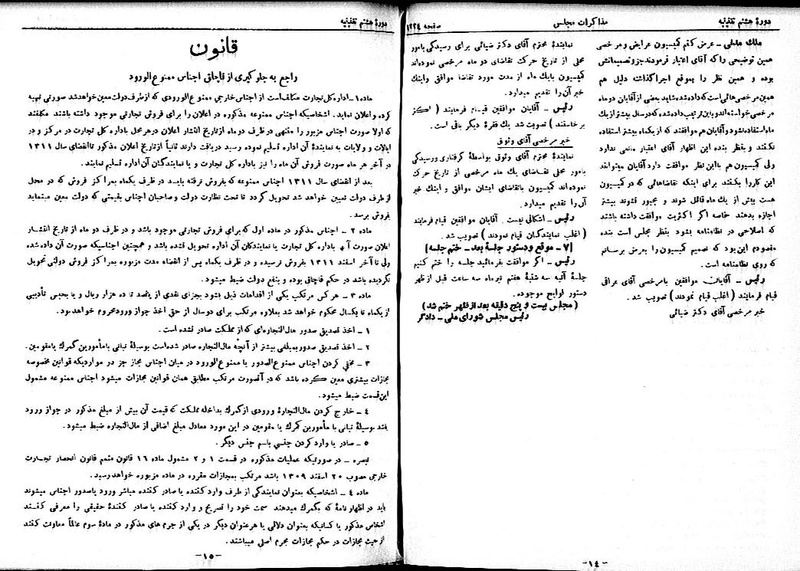 دورهٔ هشتم تقنینیه
مذاکرات مجلس
صفحه ۱۲۲۴
ملك مدنی - عرض کنم کمیسیون عرایض و مرخصی
همین توضیحی را که آقای اعتبار فرمودند جزو تصمیماتش
بوده و همین نظر را بموقع اجرا گذاشته دلیل هم
همین مرخصی هائی است که داده شده شاید بعضی از آقایان دو ماه
مرخصی خواسته اند و باین ترتیب داده شده که در سال بیش از یك
ماه استفاده نشود و آقایان هم موافقند که از یکماه بیشتر استفاده
نکنند و بنظر بنده این اظهار آقای اعتبار مانعی ندارد
ولی کمیسیون هم با این نظر موافقت دارد آقایان میتوانند
این کار را بکنند برای اینکه تقاضاهائی که در کمیسیون
هست بیش از یك ماه قائل شوند و مجبور نشوند بیشتر
اجازه بدهند خاصه اگر اکثریت موافقت داشته باشند
که اصلاحی در نظامنامه بشود بنظر مجلس است بنده
مقصودم این بود که تصمیم کمیسیون را بعرض برسانم
که روی نظامنامه است.
رئیس - آقایان موافقین با مرخصی آقای عراقی
قیام فرمایند (اغلب قیام نمودند) تصویب شد.
خبر مرخصی آقای دکتر ضیائی
نماینده محترم آقای دکتر ضیائی برای رسیدگی بامور
محلی از تاریخ حرکت تقاضای دو ماه مرخصی نموده اند
کمیسیون با یك ماه از مدت مورد تقاضا موافق و اینك
خبر آن را تقدیم میدارد.
رئیس - آقایان موافقین قیام فرمایند (اکثر
برخاستند) تصویب شد یك فقرهٔ دیگر باقی است.
خبر مرخصی آقای وثوق
نمایندهٔ محترم آقای وثوق بواسطهٔ گرفتاری و رسیدگی
بامور محلی تقاضای یك ماه مرخصی از تاریخ حرکت
نموده اند کمیسیون با تقاضای ایشان موافق و اینك خبر
آن را تقدیم میدارد.
رئیس - اشکالی نیست. آقایان موافقین قیام فرمایند
(اغلب نمایندگان قیام نمودند) تصویب شد.
(۷ - موقع و دستور جلسهٔ بعد - ختم جلسه)
رئیس - اگر موافقت بفرمائید جلسه را ختم کنیم
جلسهٔ آتیه سه شنبهٔ هفتم تیر ماه سه ساعت قبل از ظهر
دستور لوایح موجوده.
(مجلس بیست و پنج دقیقه بعد از ظهر ختم شد)
رئیس مجلس شورای ملی - دادگر
-۱٤-
دورهٔ هشتم تقنینیه
قانون
راجع به جلوگیری از قاچاق اجناس ممنوع الورود
ماده ۱ - اداره کل تجارت مکلف است از اجناس خارجی ممنوع الورودی که از طرف دولت معین خواهد شد صورتی تهیه
کرده و اعلان نماید. اشخاصیکه اجناس ممنوعه مذکوره در اعلان را برای فروش تجارتی موجود داشته باشند مکلفند
که اولا صورت اجناس مزبور را منتهی در ظرف دو ماه از تاریخ انتشار اعلان در هر محل باداره کل تجارت در مرکز و در
ایالات و ولایات به نمایندهٔ آن اداره تسلیم نموده رسید دریافت دارند ثانیاً از تاریخ اعلان مذکور تا انقضای سال ۱۳۱۱
در آخر هر ماه صورت فروش آن ماه را نیز باداره کل تجارت و یا نمایندگان آن اداره تسلیم نمایند.
بعد از انقضای سال ۱۳۱۱ اجناس ممنوعه که بفروش نرفته باید در ظرف یکماه بمراکز فروش که در محل
از طرف دولت تعیین خواهد شد تحویل گردد تا تحت نظارت دولت و صاحبان اجناس بقیمتی که دولت معین مینماید
بفروش برسد.
ماده ۲ - اجناس مذکور در ماده اول که برای فروش تجارتی موجود باشد و در ظرف دو ماه از تاریخ انتشار
اعلان صورت آن باداره کل تجارت یا نمایندگان آن اداره تحویل نشده باشد و همچنین اجناسیکه صورت آن داده شده
ولی تا آخر اسفند ۱۳۱۱ بفروش نرسیده و در ظرف یکماه پس از انقضاء مدت مزبوره بمراکز فروش دولتی تحویل
نگردیده باشد در حکم قاچاق بوده و بنفع دولت ضبط میشود.
ماده ۳ - هر کس مرتکب یکی از اقدامات ذیل بشود بجزای نقدی از پانصد تا ده هزار ریال و یا بحبس تأدیبی
از یکماه تا یکسال محکوم خواهد شد بعلاوه مرتکب برای دو سال از حق اخذ جواز ورود محروم خواهد بود.
۱ - اخذ تصدیق صدور مال التجاره ای که از مملکت صادر نشده است.
۲ - اخذ تصدیق صدور بمبلغی بیشتر از آنچه مال التجاره صادر شده است بوسیلهٔ تبانی با مأمورین گمرك یا مقومین.
۳ - مخفی کردن اجناس ممنوع الصدور یا ممنوع الورود در میان اجناس مجاز جز در مواردیکه قوانین مخصوصه
مجازات بیشتری معین کرده باشد که در آنصورت مرتکب مطابق همان قوانین مجازات میشود اجناس ممنوعه مشمول
این قسمت ضبط میشود.
٤ - خارج کردن مال التجارهٔ ورودی از گمرك بداخله مملکت که قیمت آن بیش از مبلغ مذکور در جواز ورود
باشد بوسیلهٔ تبانی با مأمورین گمرك یا مقومین در این مورد معادل مبلغ اضافی از مال التجاره ضبط میشود.
۵ - صادر یا وارد کردن جنسی باسم جنس دیگر.
تبصره - در صورتیکه عملیات مذکوره در قسمت ۱ و ۲ مشمول ماده ۱۶ قانون متمم قانون انحصار تجارت
خارجی مصوب ۲۰ اسفند ۱۳۰۹ باشد مرتکب بمجازات مقرره در ماده مزبوره خواهد رسید.
ماده ٤ - اشخاصیکه بعنوان نمایندگی از طرف وارد کننده یا صادر کننده مباشر ورود یا صدور اجناس میشوند
باید در اظهارنامهٔ که بگمرك میدهند سمت خود را تصریح و وارد کننده یا صادر کنندهٔ حقیقی را معرفی کنند
اشخاص مذکور یا کسانیکه بعنوان دلالی یا هر عنوان دیگر در یکی از جرم های مذکور در مادهٔ سوم عالماً معاونت کنند
از حیث مجازات در حکم مجازات مجرم اصلی میباشند.
-۱۵-